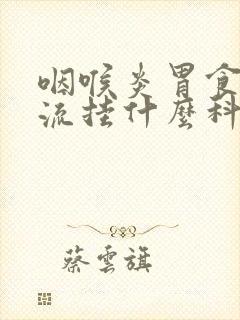 咽喉炎胃食
流挂什麼科
蔡雲旗